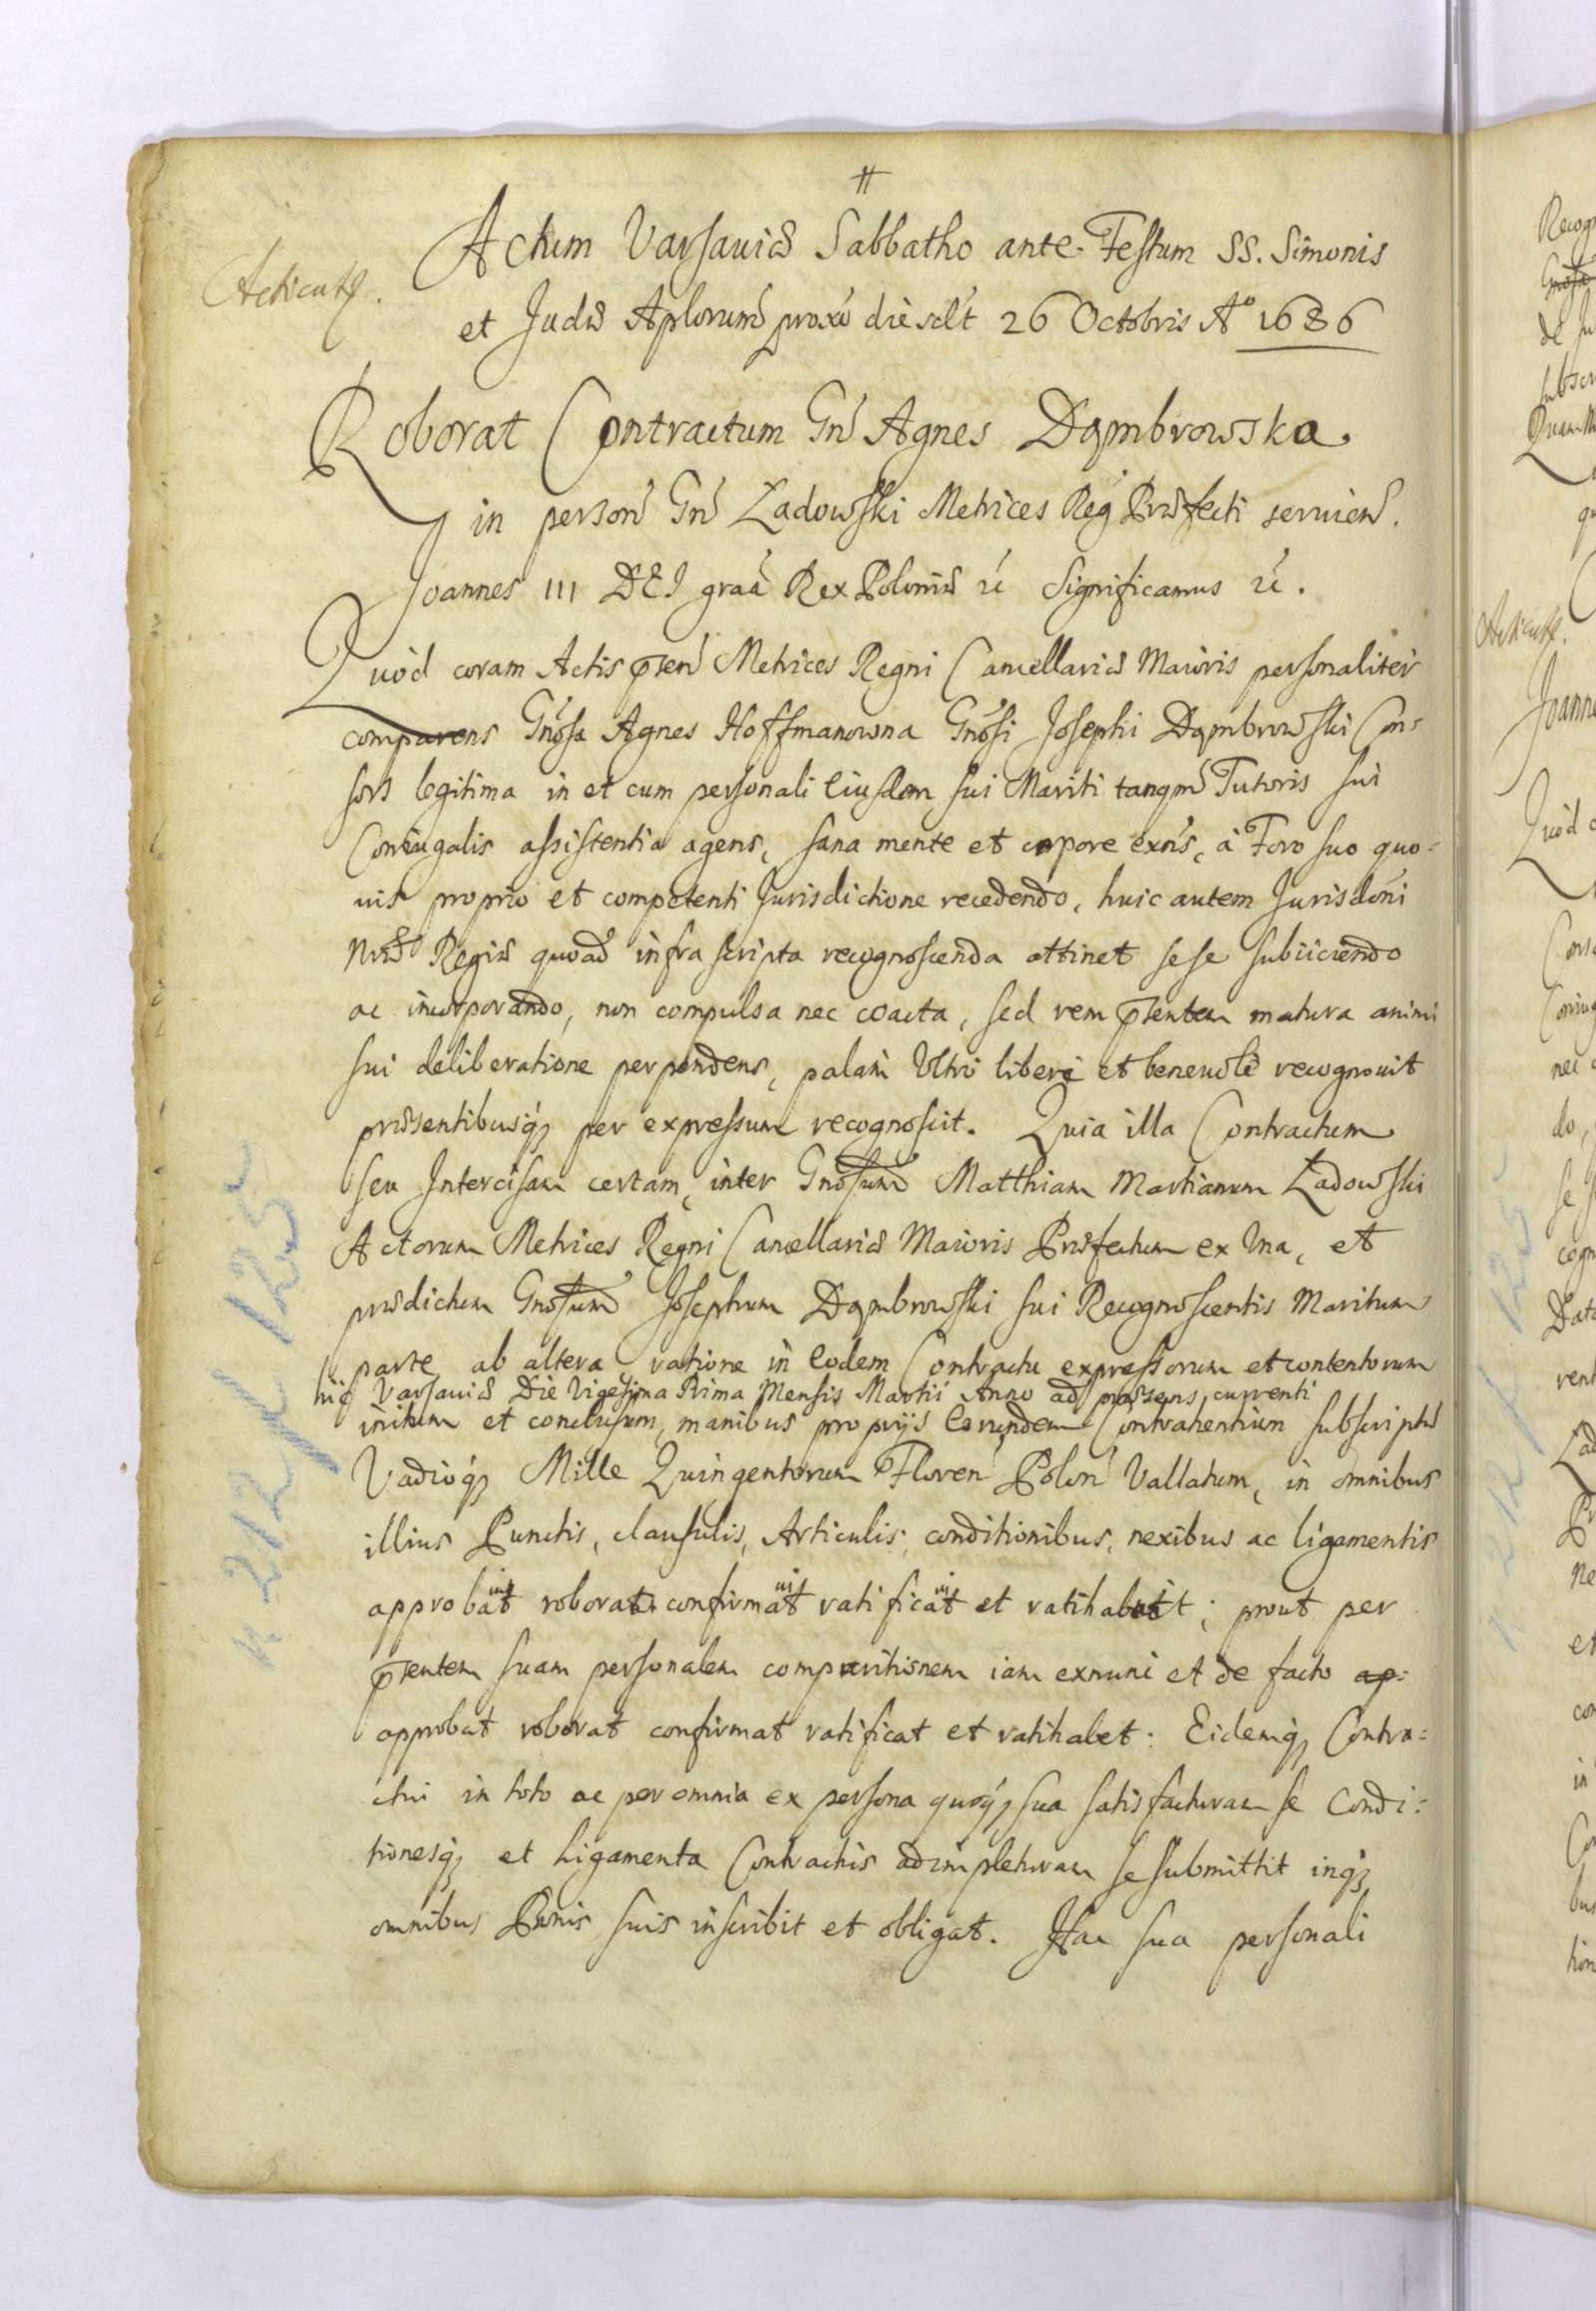 Actum Varsaviæ Sabbatho ante Festum SS. Simonis
Acticat9.
et Judæ Aplorum proxo die sclt 26 Octobris Aº 1686
Roborat Contractum Gn Agnes Dąmbrowska
in person Gn Ładowski Metrices Reg Præfecti servien.
Joannes III DEI graa Rex Poloniæ &c Significamus &c.
Quod coram Actis pnten Metrices Regni Cancellariæ Maioris personaliter
comparens Gnosa Agnes Hoffmanowna Gnosi Josephi Dąmbrowski Con=
sors legitima in et cum personali eiusdem sui Mariti tanqm Tutoris sui
Coniugalis assistentia agens, sana mente et corpore exns, à Foro suo quo=
uis proprio et competenti Jurisdictione recedendo, huic autem Jurisdoni
Nræ Regiæ quoad infra scripta recognoscenda attinet sese subiiciendo
ac incorporando, non compulsa nec coacta, sed rem pntem matura animi
sui deliberatione perpendens, palam Vltro liberè et beneuolè recognouit
præsentibusq3 per expressum recognoscit. Quia illa Contractum
seu Intercisam certam, inter Gnosum Matthiam Martianum Ładowski
Actorum Metrices Regni Cancellariæ Maioris Præfectum ex Vna, et
prædictum Gnosum Josephum Dąmbrowski sui Recognoscentis Maritum
parte ab altera ratione in eodem Contractu expressorum et contentorum
hic Varsauiæ Die Vigesima Prima Mensis Martii Anno ad præsens currenti
initum et conclusum, manibus proprijs Eorundem Contrahentium subscriptū
Vadioq3 Mille Quingentorum Floren Polon Vallatum, in omnibus
illius Punctis, clausulis, Articulis, conditionibus, nexibus ac ligamentis
approbauit roborat confirmauit ratificauit et ratihabuit; prout per
pntem suam personalem comparitionem iam exnunc et de facto ap=
approbat roborat confirmat ratificat et ratihabet: Eidemq3 Contra=
ctui in toto ac per omnia ex persona quoq3 sua satisfacturam se Condi=
tionesq3 et Ligamenta Contractus adimpleturam se submittit inq3
omnibus Bonis suis inscribit et obligat. Hac sua personali